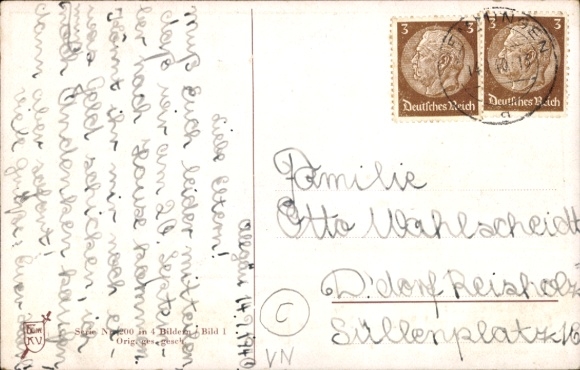 Allgäu 14.7.1940
Liebe Eltern!
Muß Euch leider mitteilen
daß wir am 26. Sept.
ber nach Hause kommen.
Könnt ihr mir noch et-
was Geld schicken, ich
muß
noch Andenken kaufen
dann aber sofort!
viele Grüße Euer
3
Deutsches Reich
3
Deutsches Reich
Familie
Otto Wahlscheidt
D'dorf Reisholz
Süllenplatz 16
C
VN
Serie Nr. 200 in 4 Bildern / Bild 1
Orig. ges. gesch.
KV